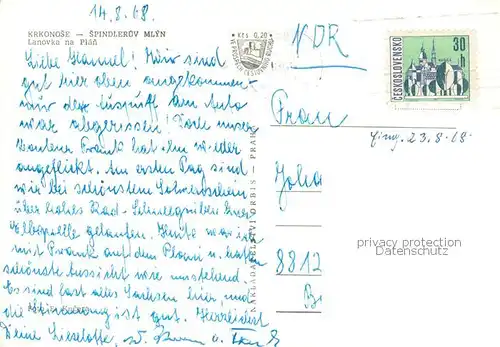 14.8.68.
KRKONOŠE — ŠPINDLERŮV MLÝN
Lanovka na Pláň
Kčs 0,20
DDR
ČESKOSLOVENSKO
30 h
Liebe Mannel! Wir sind
gut hier oben angekommen
nur der Auspuff am Auto
war abgerissen! Doch unser
Frank hat ihn wieder
angeflickt. Am ersten Tag sind
wir bei schönstem Sonnenschein
über hohes Rad - Schneegruben
gelaufen. Heute war ich
mit Frank auf dem Plani u. hatten
schönste Aussicht wie umstehend
Es sind fast alles Sachsen hier, und
die Stimmung ist gut. Herzlichst
Deine Lieselotte, u. Frank
NAKLADATELSTVÍ ORBIS — PRAHA
Frau
Eing. 23.8.68
Joha
8812
privacy protection
Datenschutz